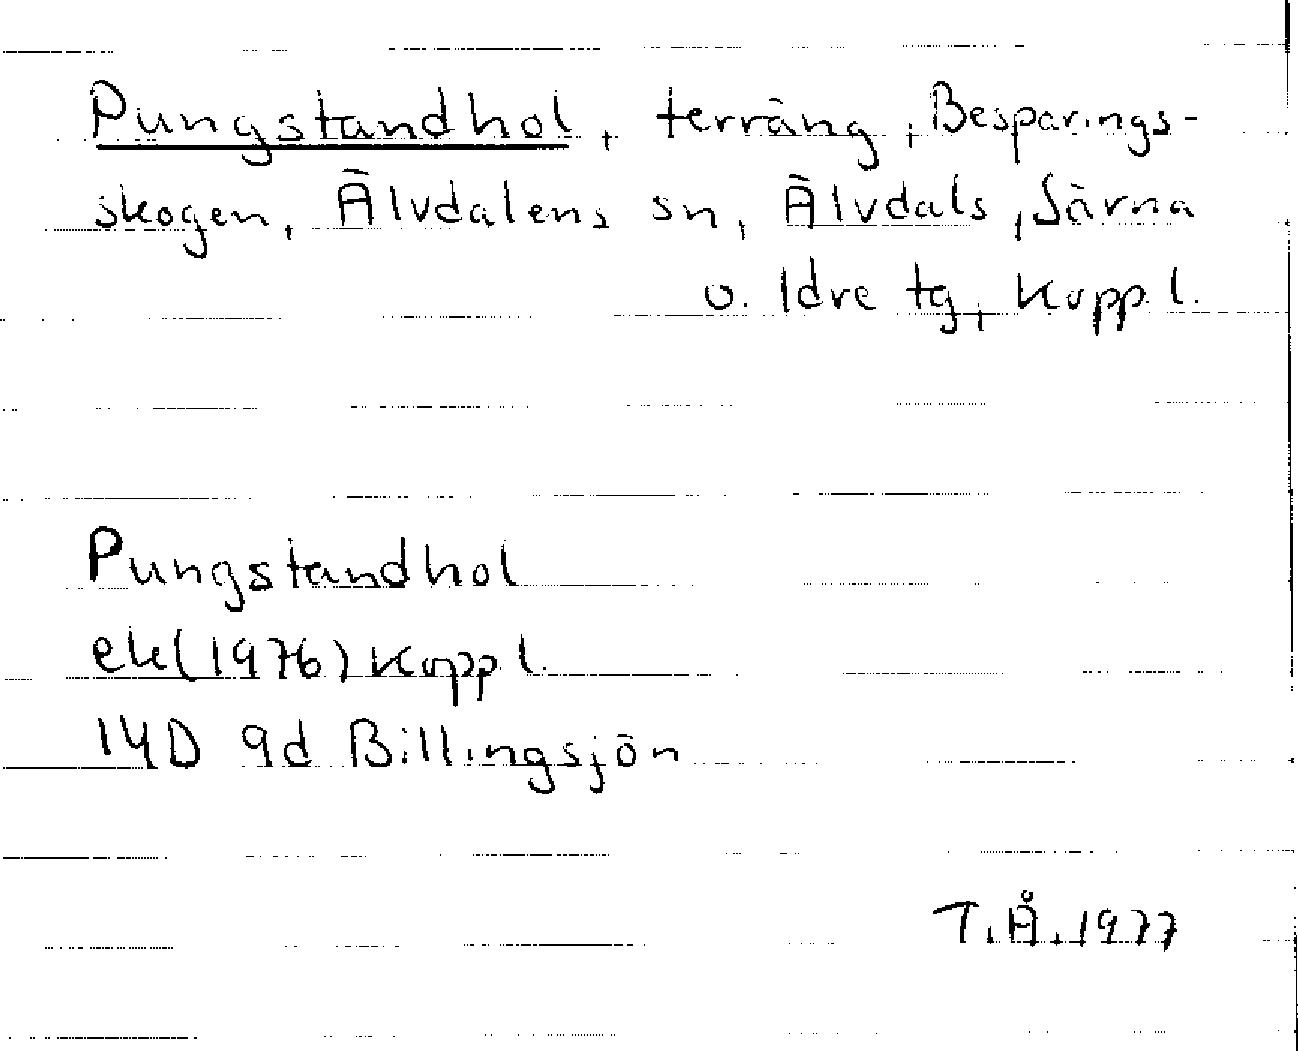 Pungstandhol, terräng, Besparings-
skogen, Älvdalens sn, Älvdals, Särna
o. Idre tg, Kopp.l.
Pungstandhol
ek(1976) Kopp l.
14D 9d Billingsjön
T.Å.1977